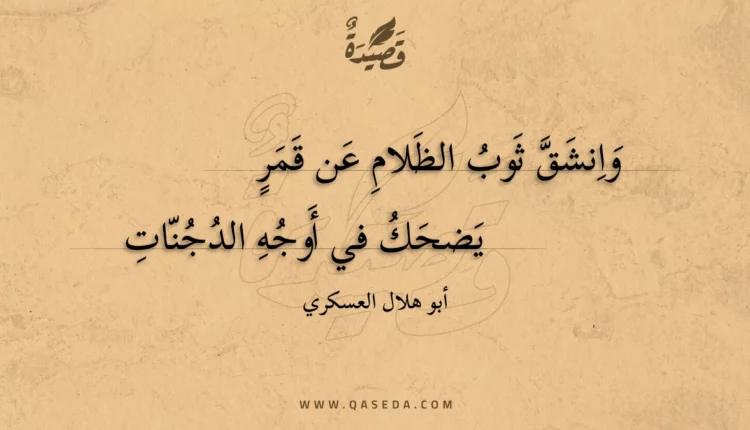 قَصِيْدَةٌ
وَاِنشَقَّ ثَوبُ الظَلامِ عَن قَمَرٍ
يَضحَكُ في أَوجُهِ الدُجُنّاتِ
أبو هلال العسكري
WWW.QASEDA.COM